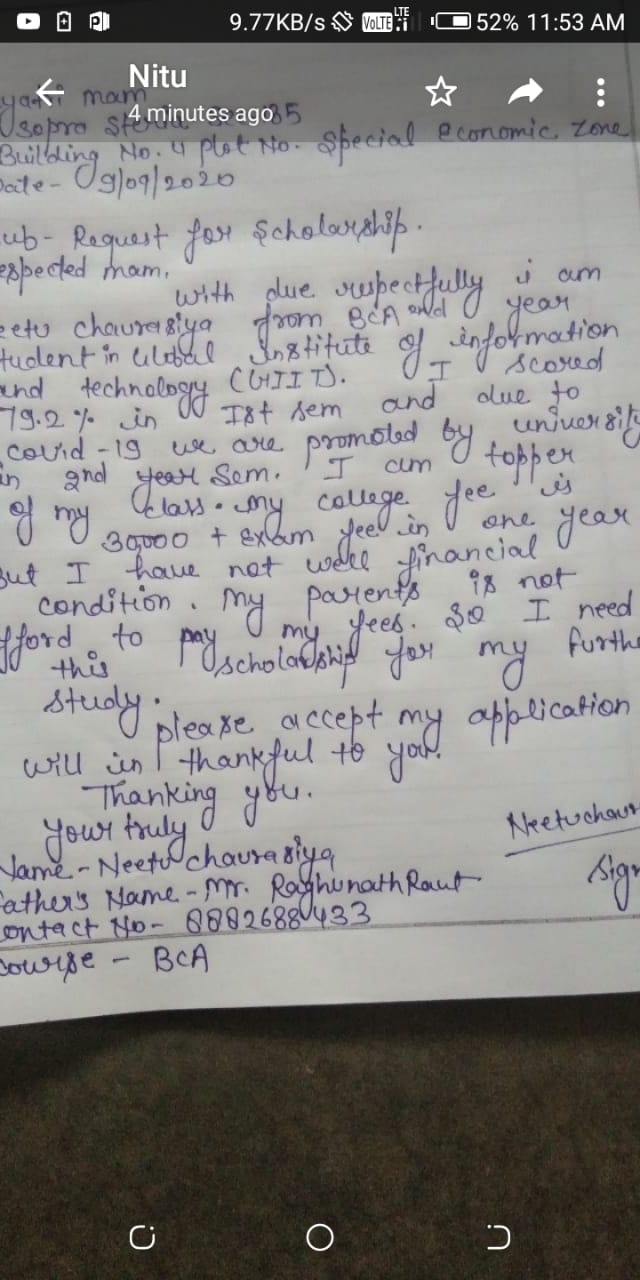 9.77KB/s VoLTE LTE 52% 11:53 AM
Nitu
4 minutes ago
mam
sopro 85
Building No. 4 plot No. Special economic zone
ate - 09/09/2020
ub - Request for Scholarship.
espected mam,
with due respectfully i am
eetu chaurasiya from BCA 2nd year
tudent in Global institute of information
and technology (GIIT). I scored
79.2% in Ist sem and due to
covid-19 we are promoted by university
in 2nd year Sem. I am topper
of my class. my college fee is
30,000 + Exam fee in one year
But I have not well financial
condition. My parents is not
fford to pay my fees. So I need
this scholarship for my furthe
study.
please accept my application
will in thankful to you.
Thanking you.
your truly
Neetuchaur
Name - Neetu chaurasiya
Sign
ather's Name - Mr. Raghunath Raut
ontact No - 8882688433
course - BCA